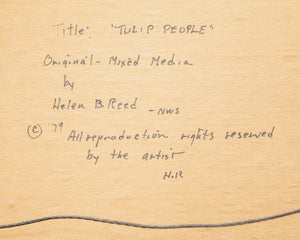 Title: "TULIP PEOPLE"
Original - Mixed Media
by
Helen B. Reed - NWS
© 79 All reproduction rights reserved
by the artist
H.R